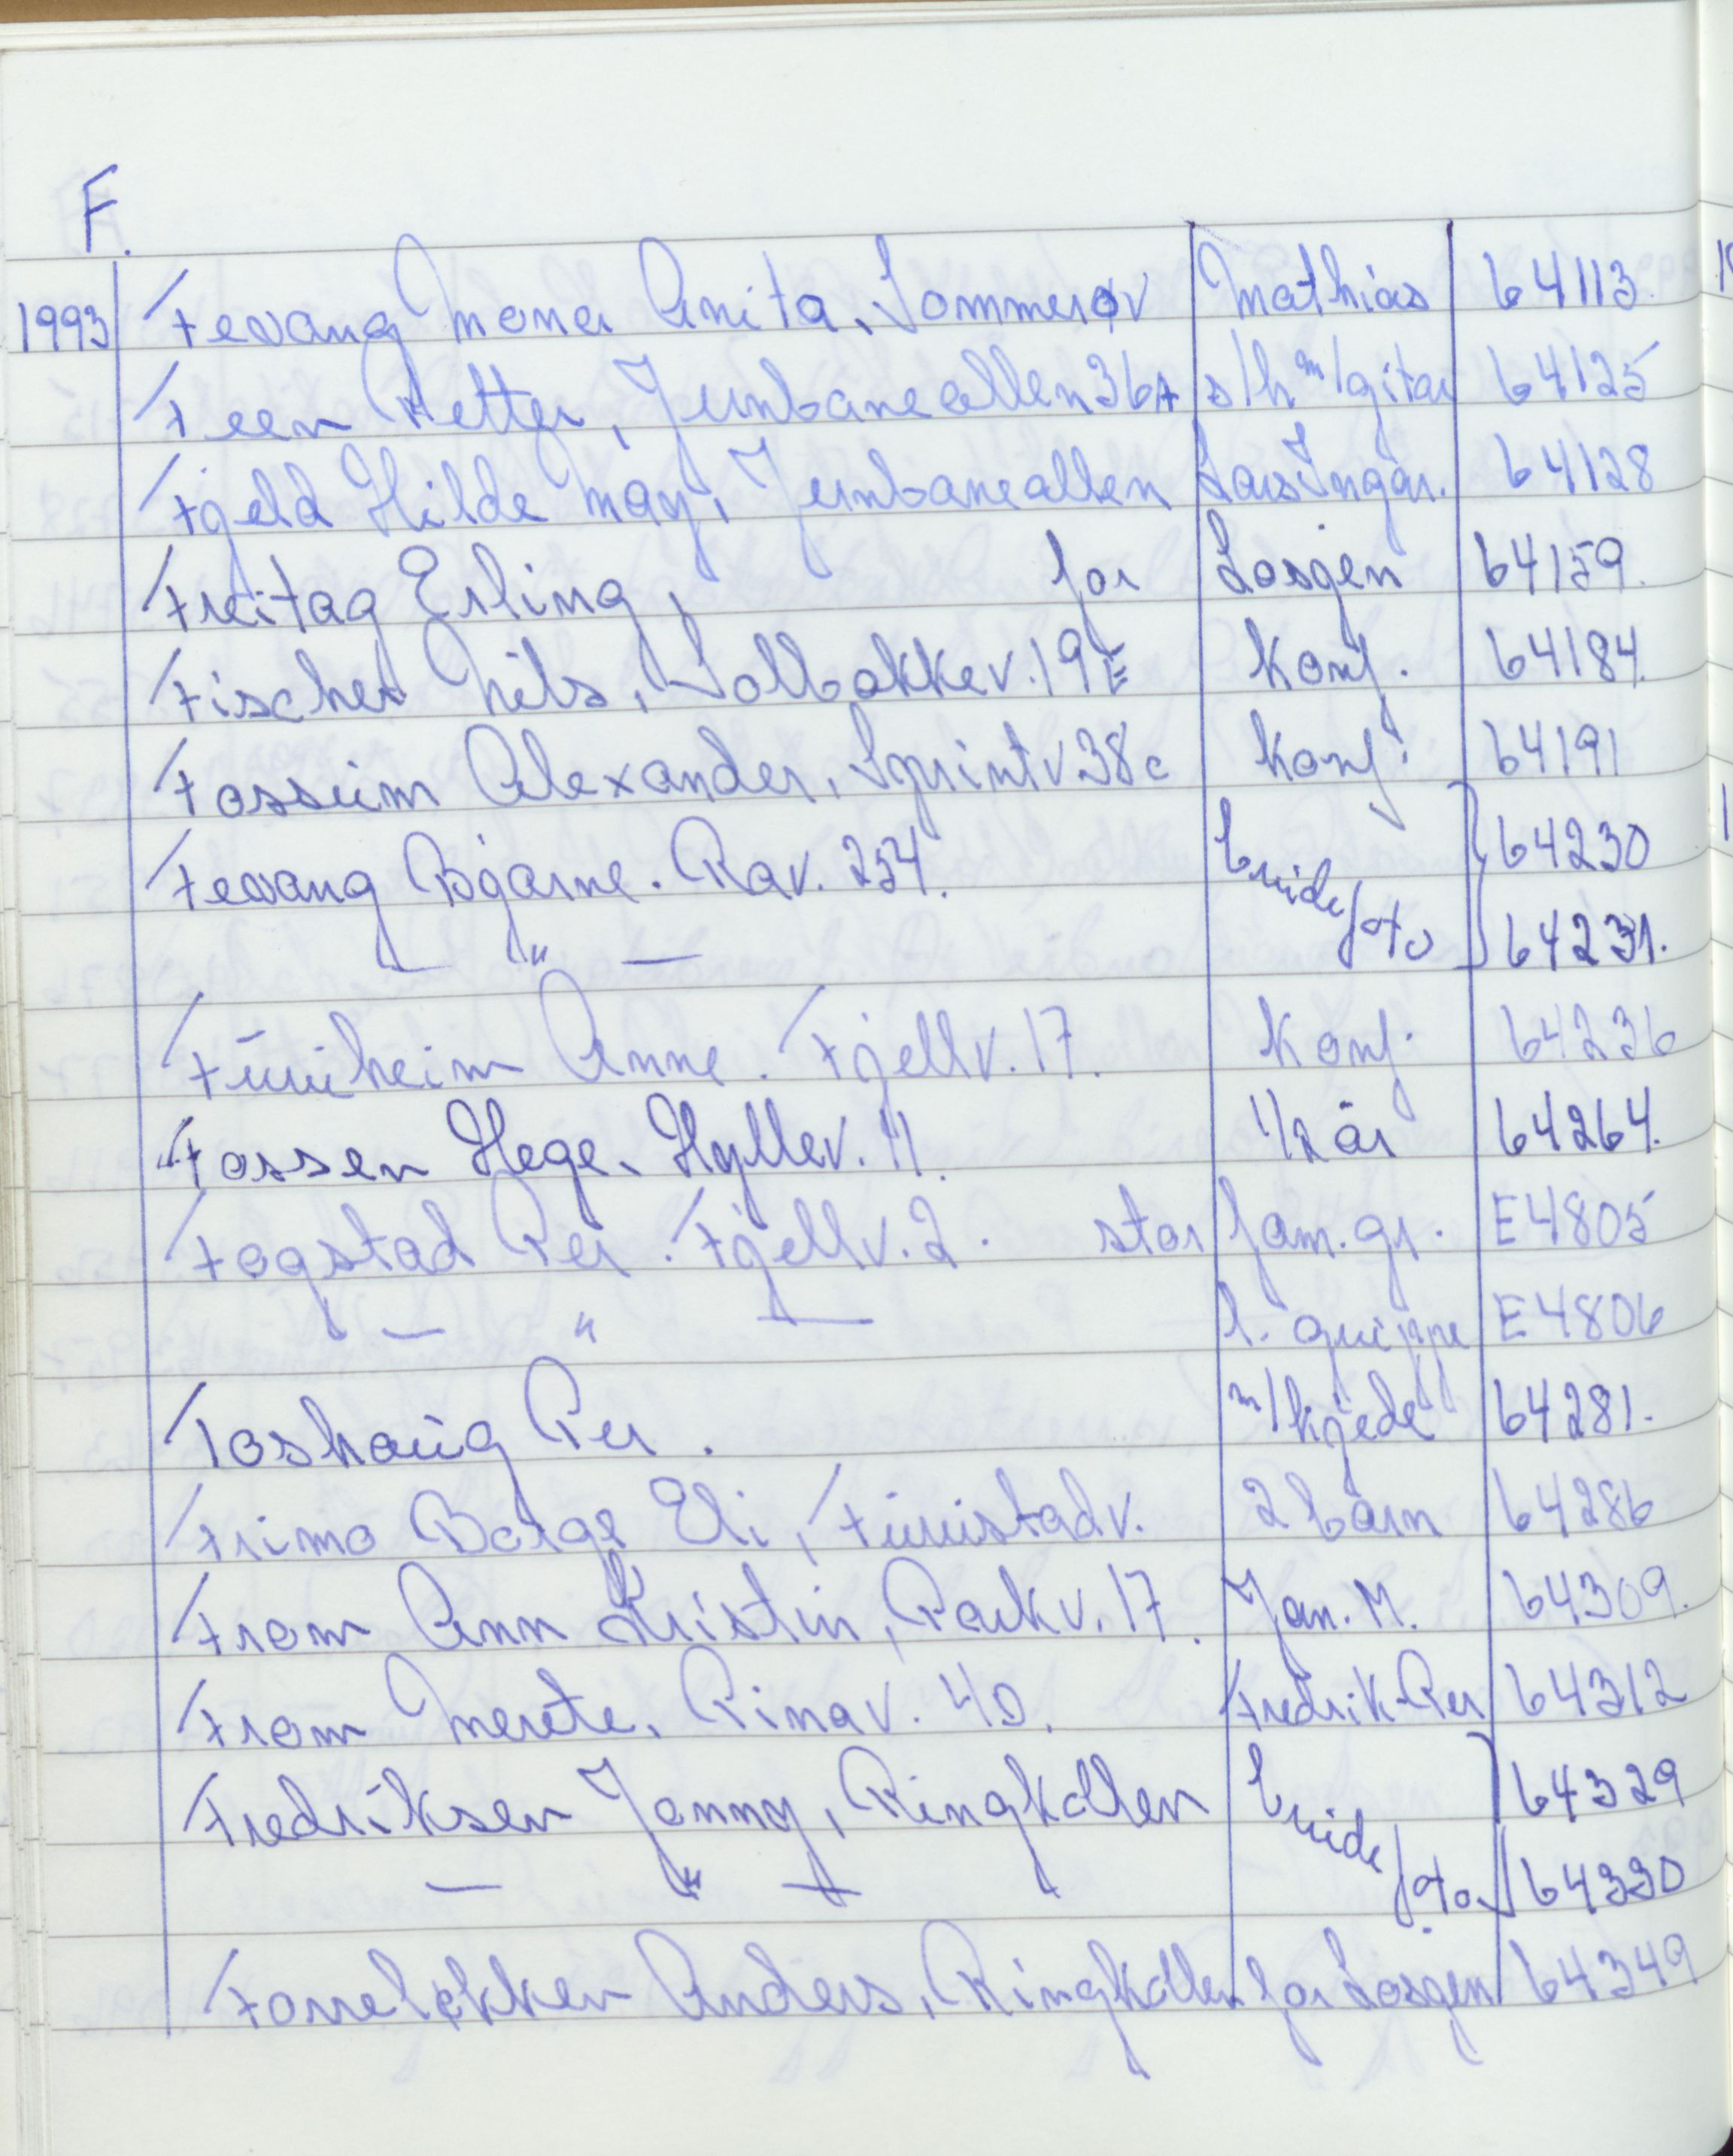 F.
1993 Fevang Mona Anita, Sommerøv Mathias 64113.
Feen Petter, Jernbanealleen 36A s/h m/gitar 64125
Fjeld Hilde May, Jernbanealleen Lars Ingar. 64128
Freitag Erling, for Losjen 64159.
Fischer Nils, Solbakkev. 19E Konf. 64184.
Fossum Alexander, Sprintv 38c Konf. 64191
Fevang Bjarne. Rav. 254. brude 64230
— " — foto 64231.
Furuheim Anne. Fjellv. 17. Konf. 64236
Fossen Hege. Hyllev. 11. 1/2 år 64264.
Fogstad Per. Fjellv. 2. stor fam. gr. E4805
— " — l. gruppe E4806
Foshaug Per. m/kjede 64281.
Frimo Borge Eli, Furustadv. 2 barn 64286
From Ann Kristin, Parkv. 17. Jan. M. 64309.
From Merete, Rimav. 40. Fredrik Per 64312
Fredriksen Jonny, Ringkollen brude 64329
— " — foto 64330
Fosseløkken Anders, Ringkollen for Losjen 64349